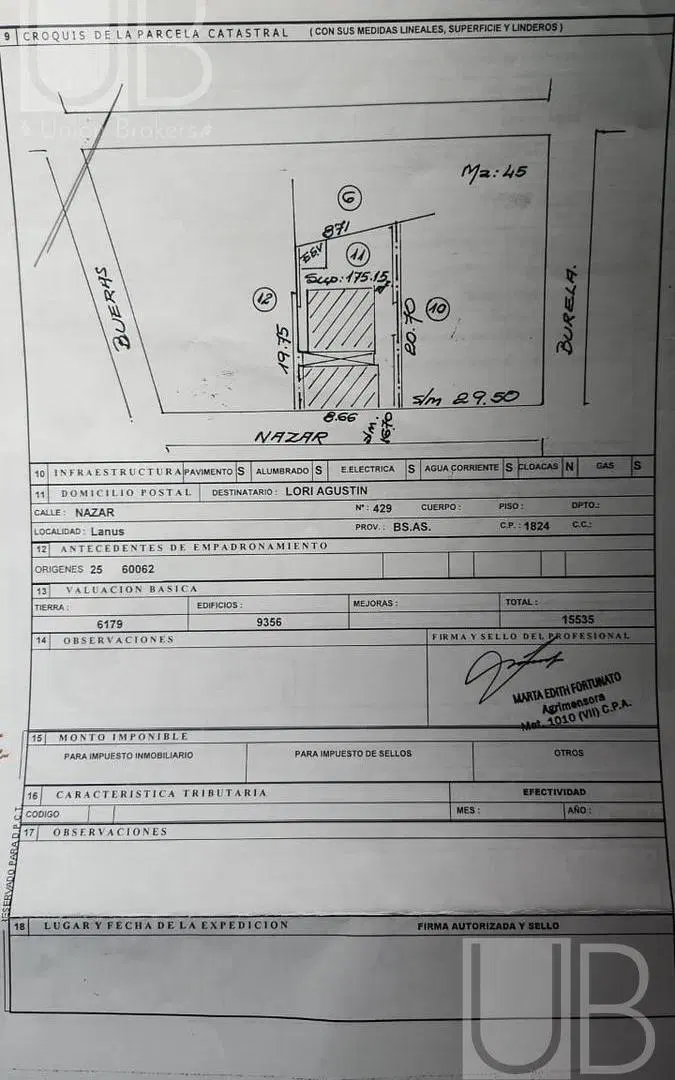 9 CROQUIS DE LA PARCELA CATASTRAL (CON SUS MEDIDAS LINEALES, SUPERFICIE Y LINDEROS)
UB
Union Brokers
Mz: 45
6
871
11
Sup: 175.15
12
10
BUERAS
19.75
20.70
BURELA.
s/m 29.50
8.66
s/m.
NAZAR
10 INFRAESTRUCTURA PAVIMENTO S ALUMBRADO S E.ELECTRICA S AGUA CORRIENTE S CLOACAS N GAS S
11 DOMICILIO POSTAL DESTINATARIO: LORI AGUSTIN
CALLE: NAZAR N°: 429 CUERPO: PISO: DPTO.:
LOCALIDAD: Lanus PROV.: BS.AS. C.P.: 1824 C.C.:
12 ANTECEDENTES DE EMPADRONAMIENTO
ORIGENES 25 60062
13 VALUACION BASICA
TIERRA: EDIFICIOS: MEJORAS: TOTAL:
6179 9356 15535
14 OBSERVACIONES FIRMA Y SELLO DEL PROFESIONAL
MARTA EDITH FORTUNATO
Agrimensora
Mat. 1010 (VII) C.P.A.
15 MONTO IMPONIBLE
PARA IMPUESTO INMOBILIARIO PARA IMPUESTO DE SELLOS OTROS
16 CARACTERISTICA TRIBUTARIA EFECTIVIDAD
CODIGO MES: AÑO:
17 OBSERVACIONES
RESERVADO PARA D.P.C.T.
18 LUGAR Y FECHA DE LA EXPEDICION FIRMA AUTORIZADA Y SELLO
UB